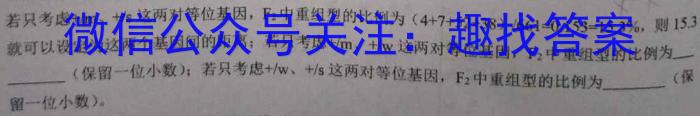 若只考虑 这两对等位基因，F₂中重组型的比例为（4+7+ 则15.3
就可以 这两 基因间的距离；若只考虑 /m、+/w 这两对等位基因，F₂中重组型的比例为__
______（保留一位小数）；若只考虑+/w、+/s 这两对等位基因，F₂中重组型的比例为______（保
留一位小数）。
微信公众号关注：趣找答案